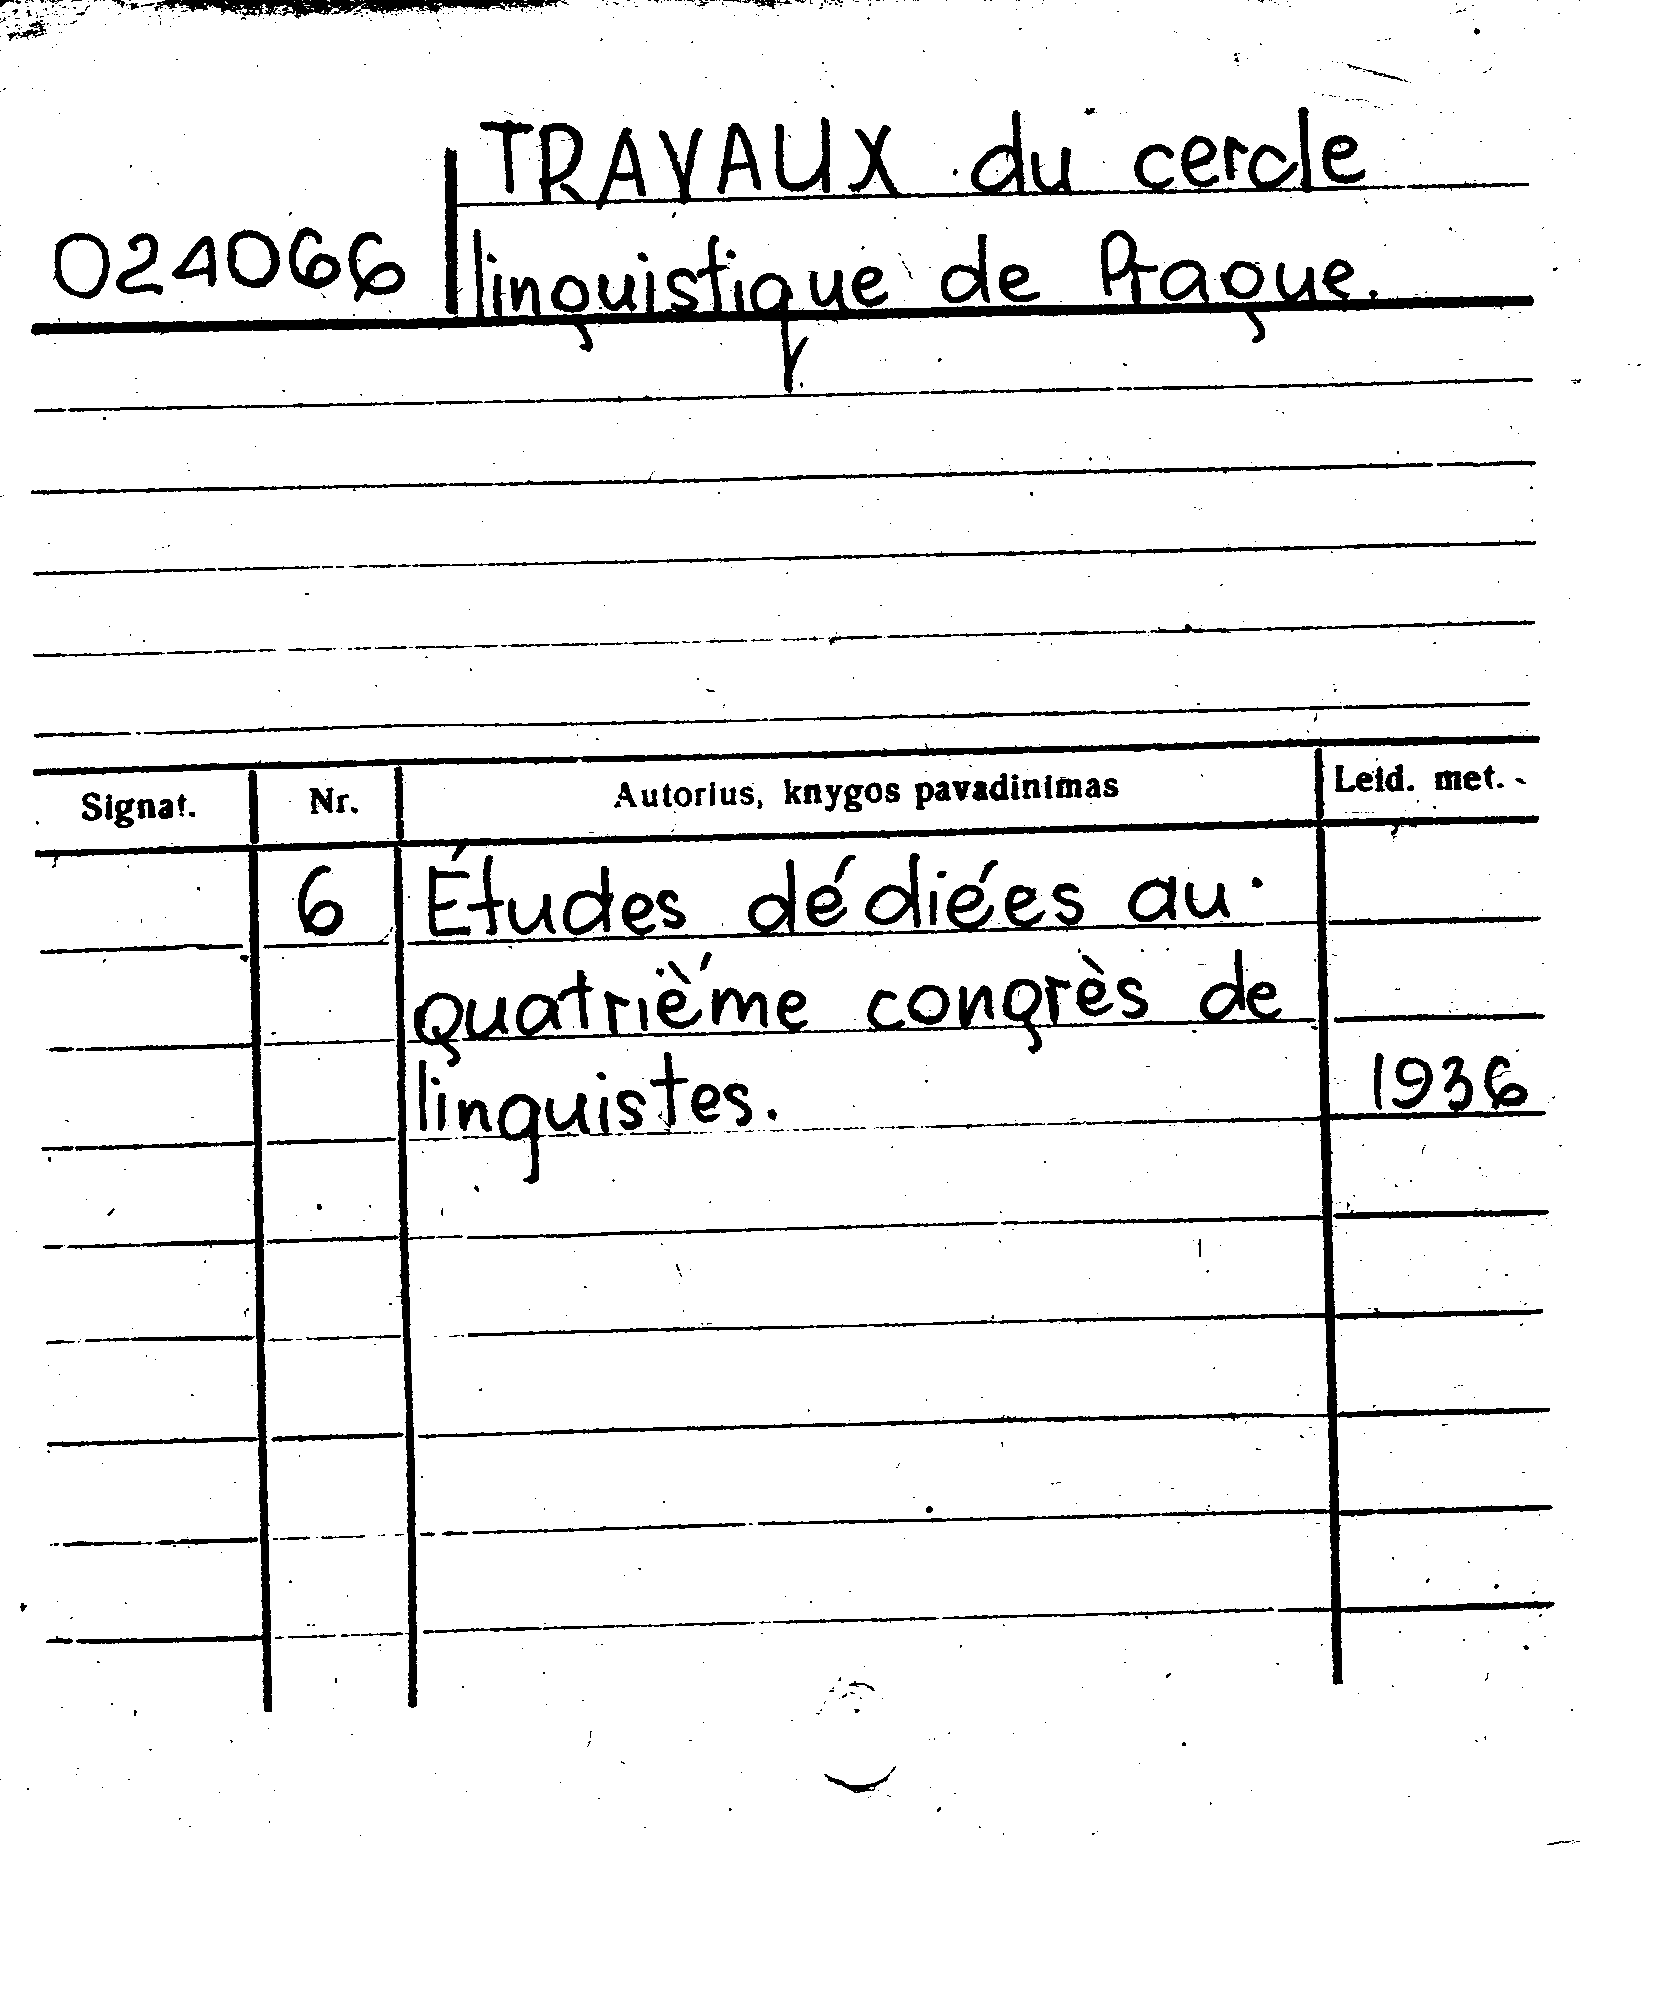 TRAVAUX du cercle
024066 linguistique de Prague.
Signat. Nr. Autorius, knygos pavadinimas Leid. met.
6 Études dédiées au
quatrième congrès de
linguistes. 1936